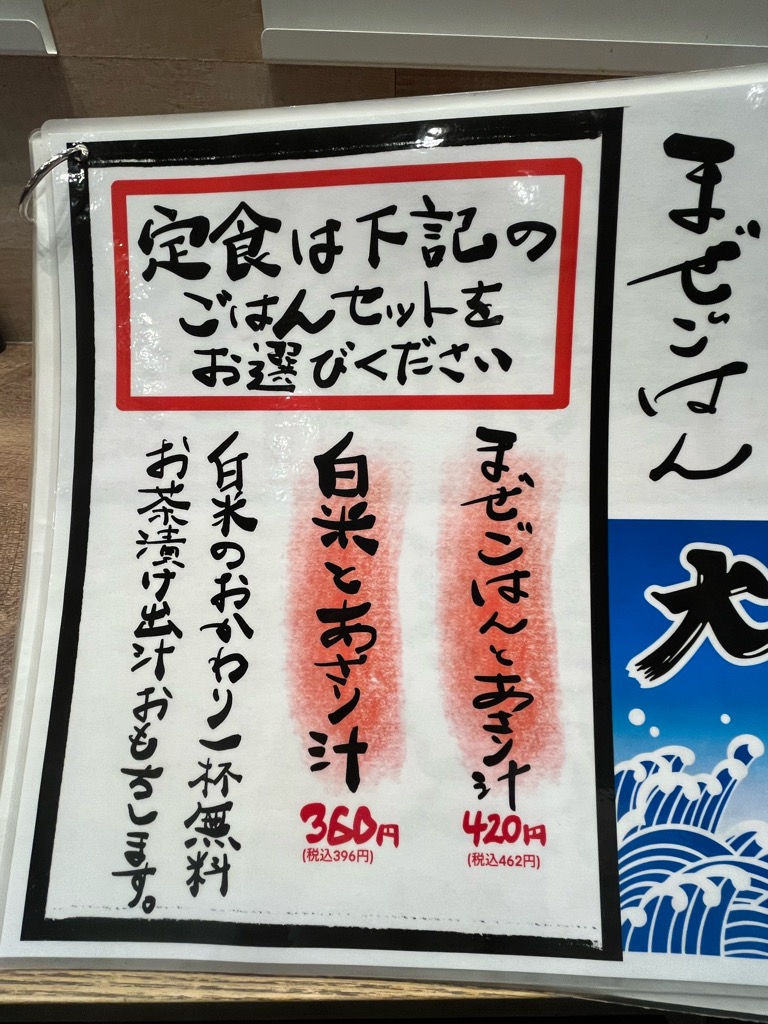 定食は下記の
ごはんセットを
お選びください
まぜごはんとあさり汁
420円
(税込462円)
白米とあさり汁
360円
(税込396円)
白米のおかわり一杯無料
お茶漬け出汁おもちします。
まぜごはん